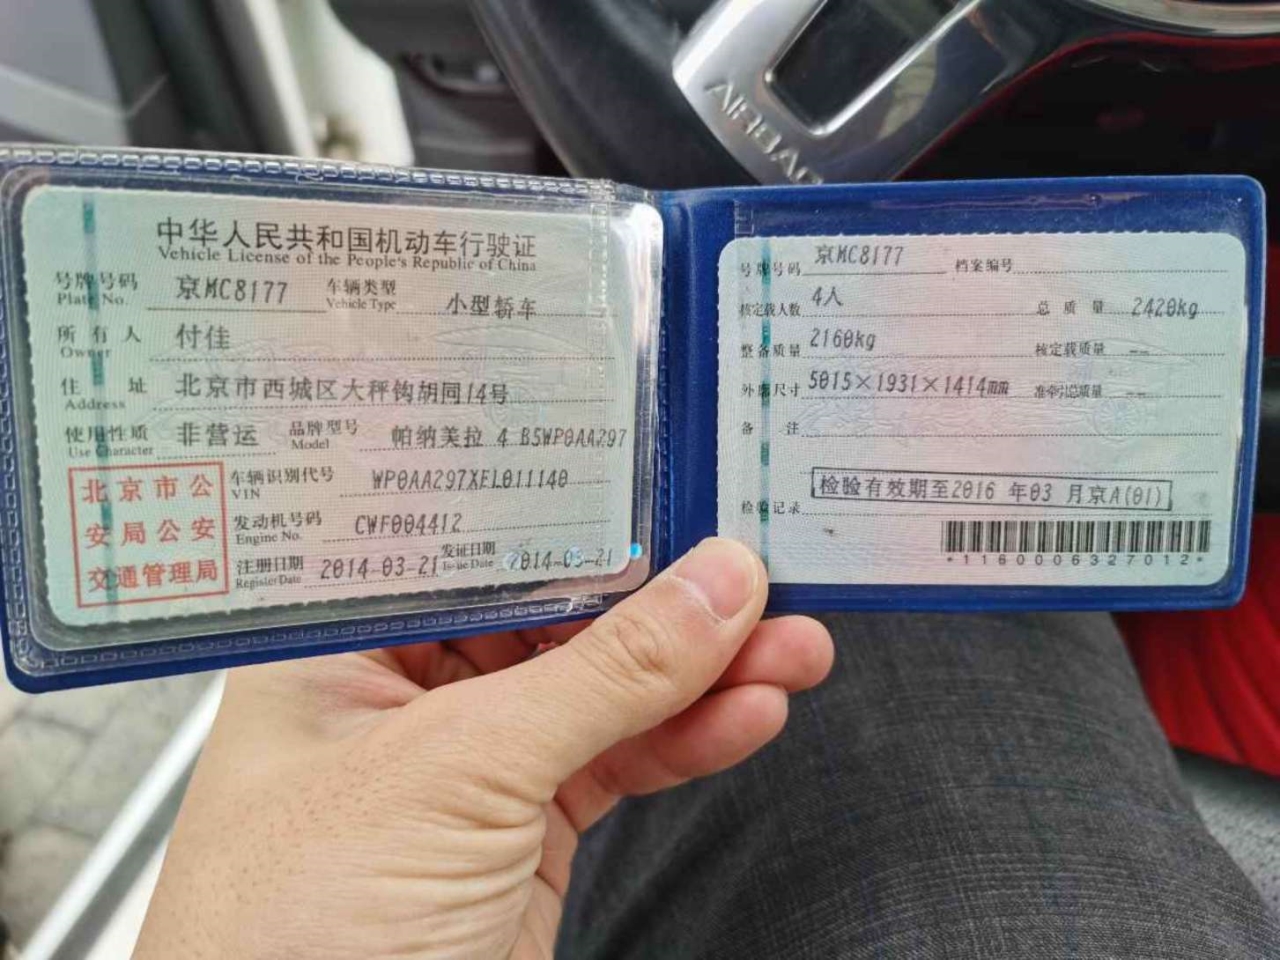 AIRBAG
中华人民共和国机动车行驶证
Vehicle License of the People's Republic of China
号牌号码 京MC8177 车辆类型 小型轿车
Plate No. Vehicle Type
所有人 付佳
Owner
住址 北京市西城区大秤钩胡同14号
Address
使用性质 非营运 品牌型号 帕纳美拉 4 BSWP0AA297
Use Character Model
北京市公
安局公安
交通管理局
车辆识别代号 WP0AA297XEL011140
VIN
发动机号码 CWF004412
Engine No.
注册日期 2014-03-21 发证日期 2014-03-21
Register Date Issue Date
号牌号码 京MC8177 档案编号
核定载人数 4人 总质量 2420kg
整备质量 2160kg 核定载质量 --
外廓尺寸 5015×1931×1414mm 准牵引总质量 --
备注
检验记录 检验有效期至2016 年03 月京A(01)
*1160006327012*